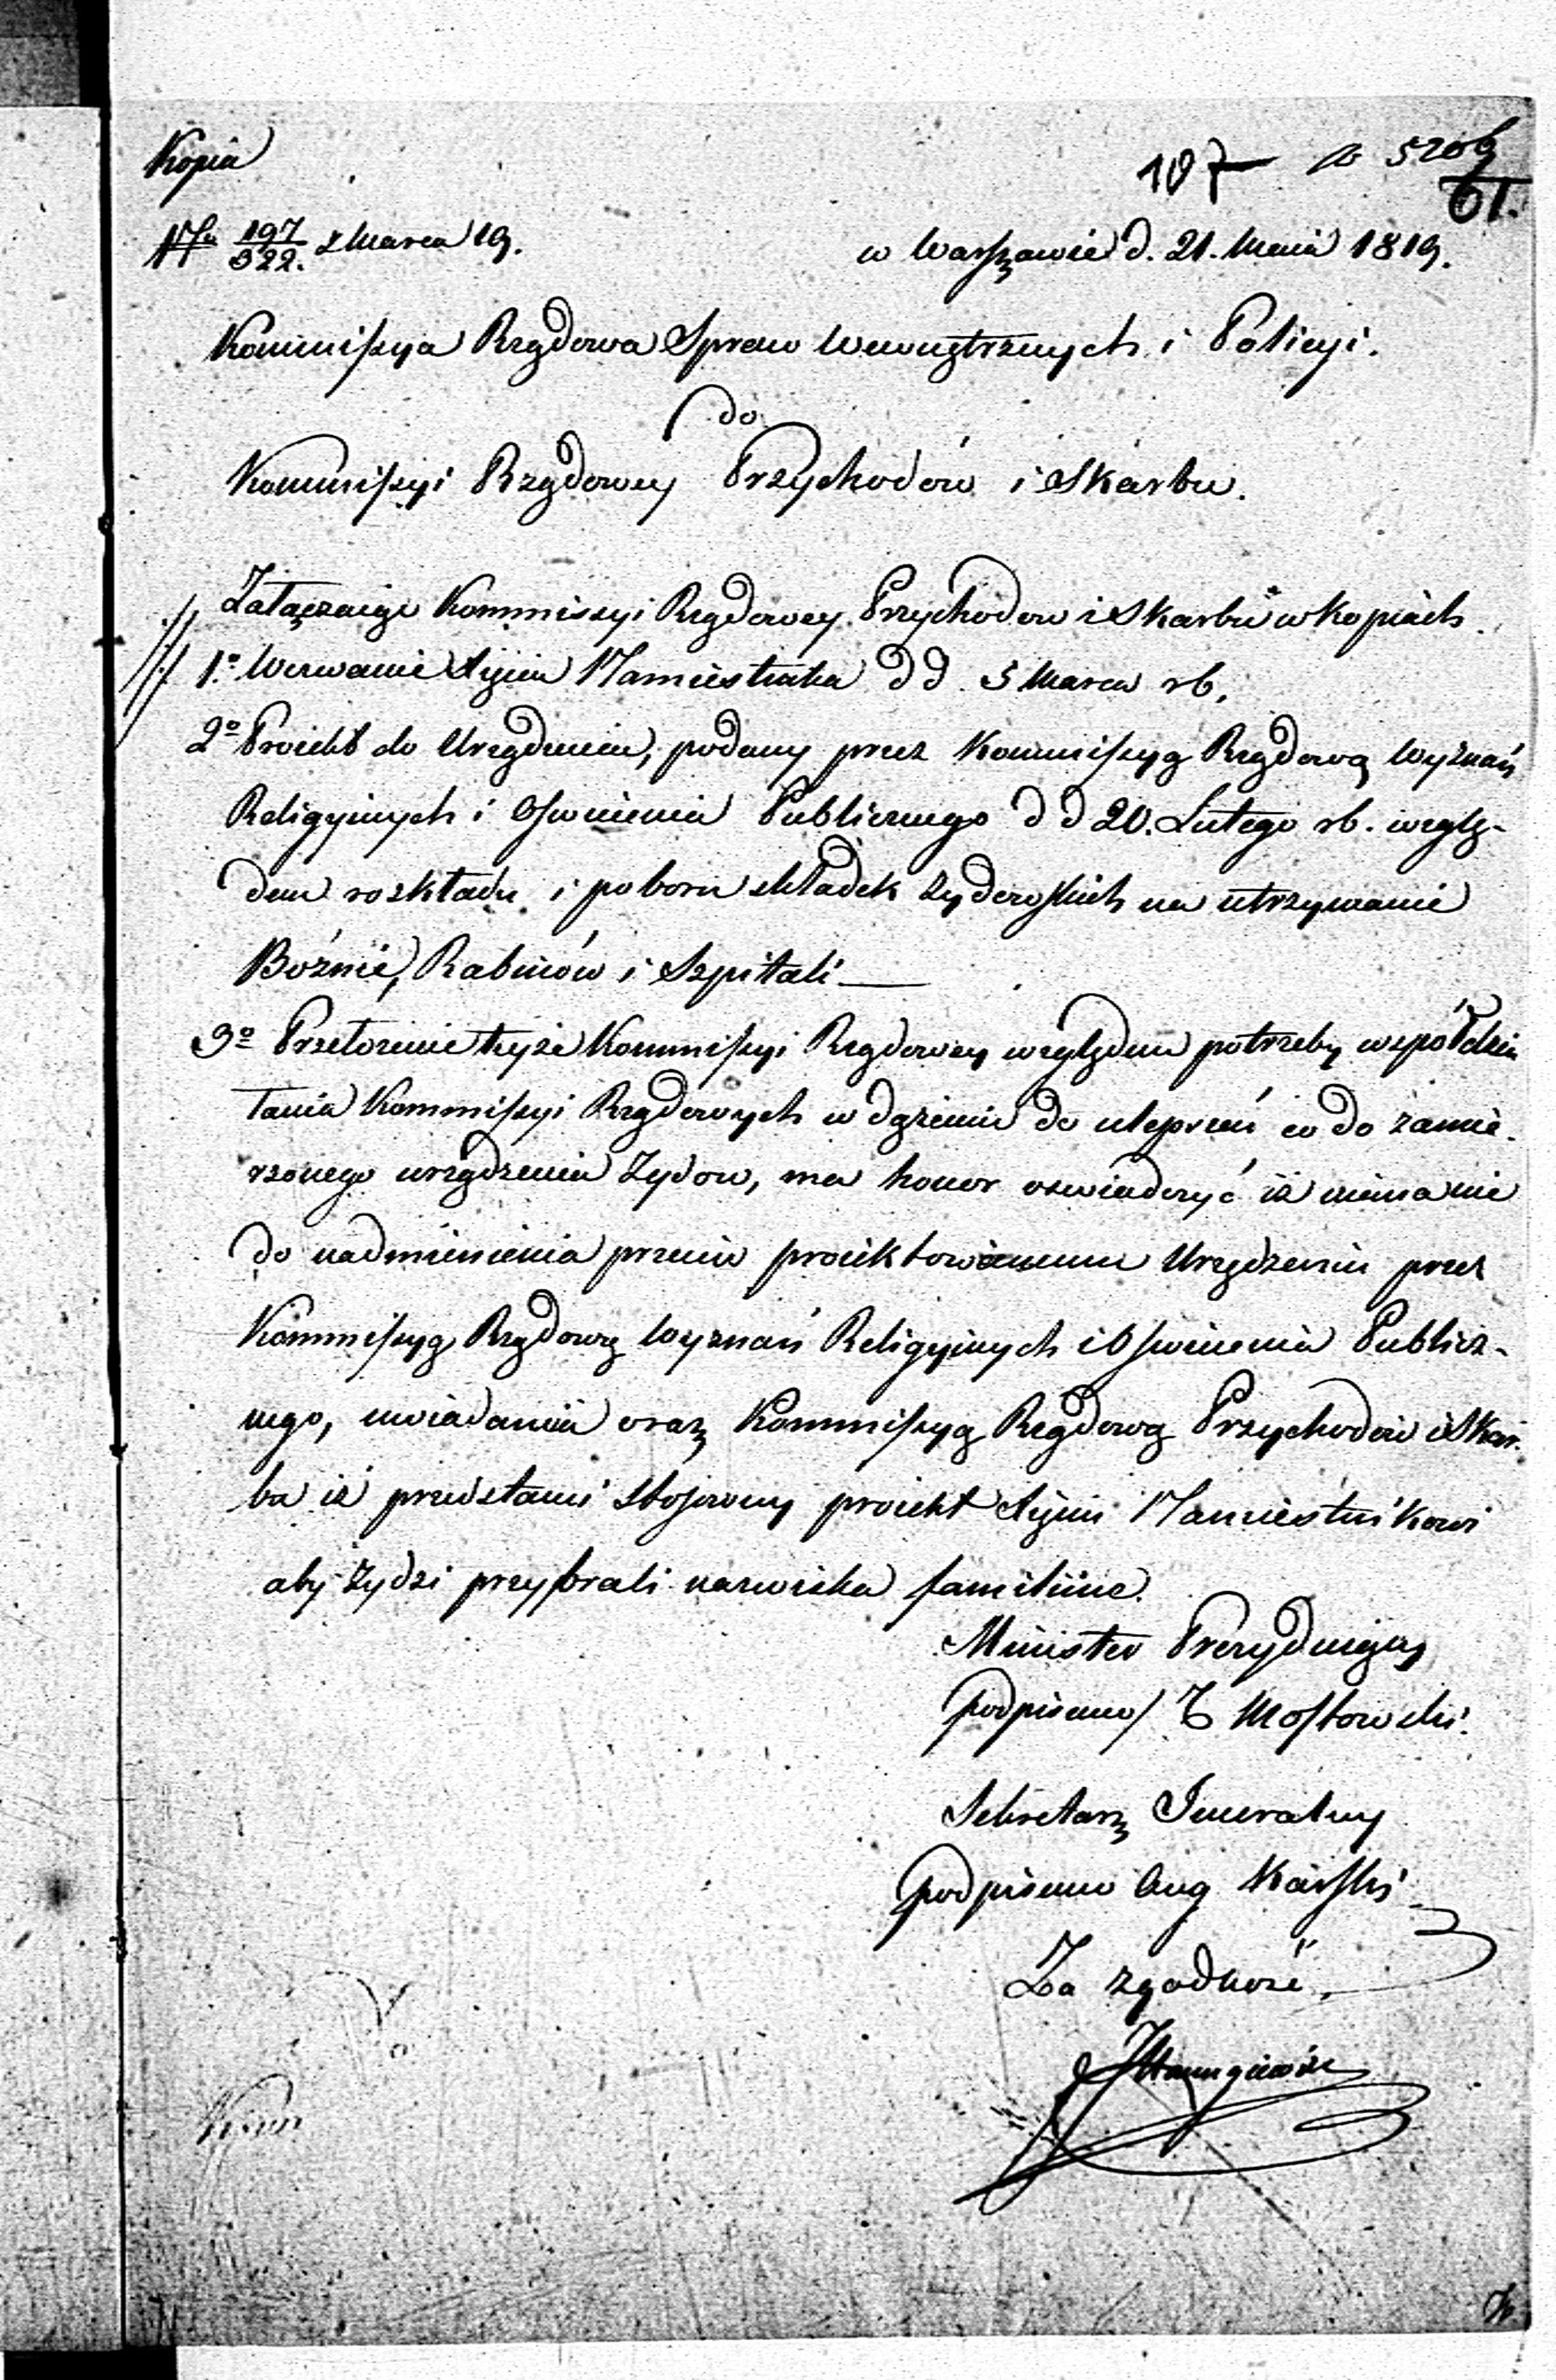 Kopia
107 N 5206
61.
197
322. z Marca 19.
w Warszawie d. 21. Maia 1819.
Kommissya Rządowa Spraw Wewnętrznych i Policyi.
do
Kommissyi Rządowey Przychodów i Skarbu.
Załączaiąc Kommissyi Rządowey Przychodow i Skarbu w kopiach
1º Wezwanie Xięcia Namiestnika d d. 5 Marca rb.
2º Proiekt do Urządzenia, podany przez Kommissyą Rządową Wyznań
Religyinych i Oświecenia Publicznego d d 20. Lutego rb. wzglę-
dem rozkładu i poboru składek żydowskich na utrzymanie
Bóżnic, Rabinów i Szpitali
3º Przełożenie teyże Kommissyi Rządowey względem potrzeby współdzia
łania Kommissyi Rządowych w dążeniu do ulepszeń co do zamie-
rzonego urządzenia Żydow, ma honor oświadczyć iż niema nic
do nadmienienia przeciw proiektowanemu Urządzeniu przez
Kommissyą Rządową Wyznań Religyinych i Oświecenia Publicz-
nego, uwiadamia oraz Kommissyą Rządową Przychodów i Skar-
bu iż przedstawi stosowny proiekt Xięciu Namiestnikowi
aby Żydzi przybrali nazwiska familiine.
Minister Prezyduiący
podpisano / T Mostowski.
Sekretarz Jeneralny
podpisano Aug Karski
Za zgodność